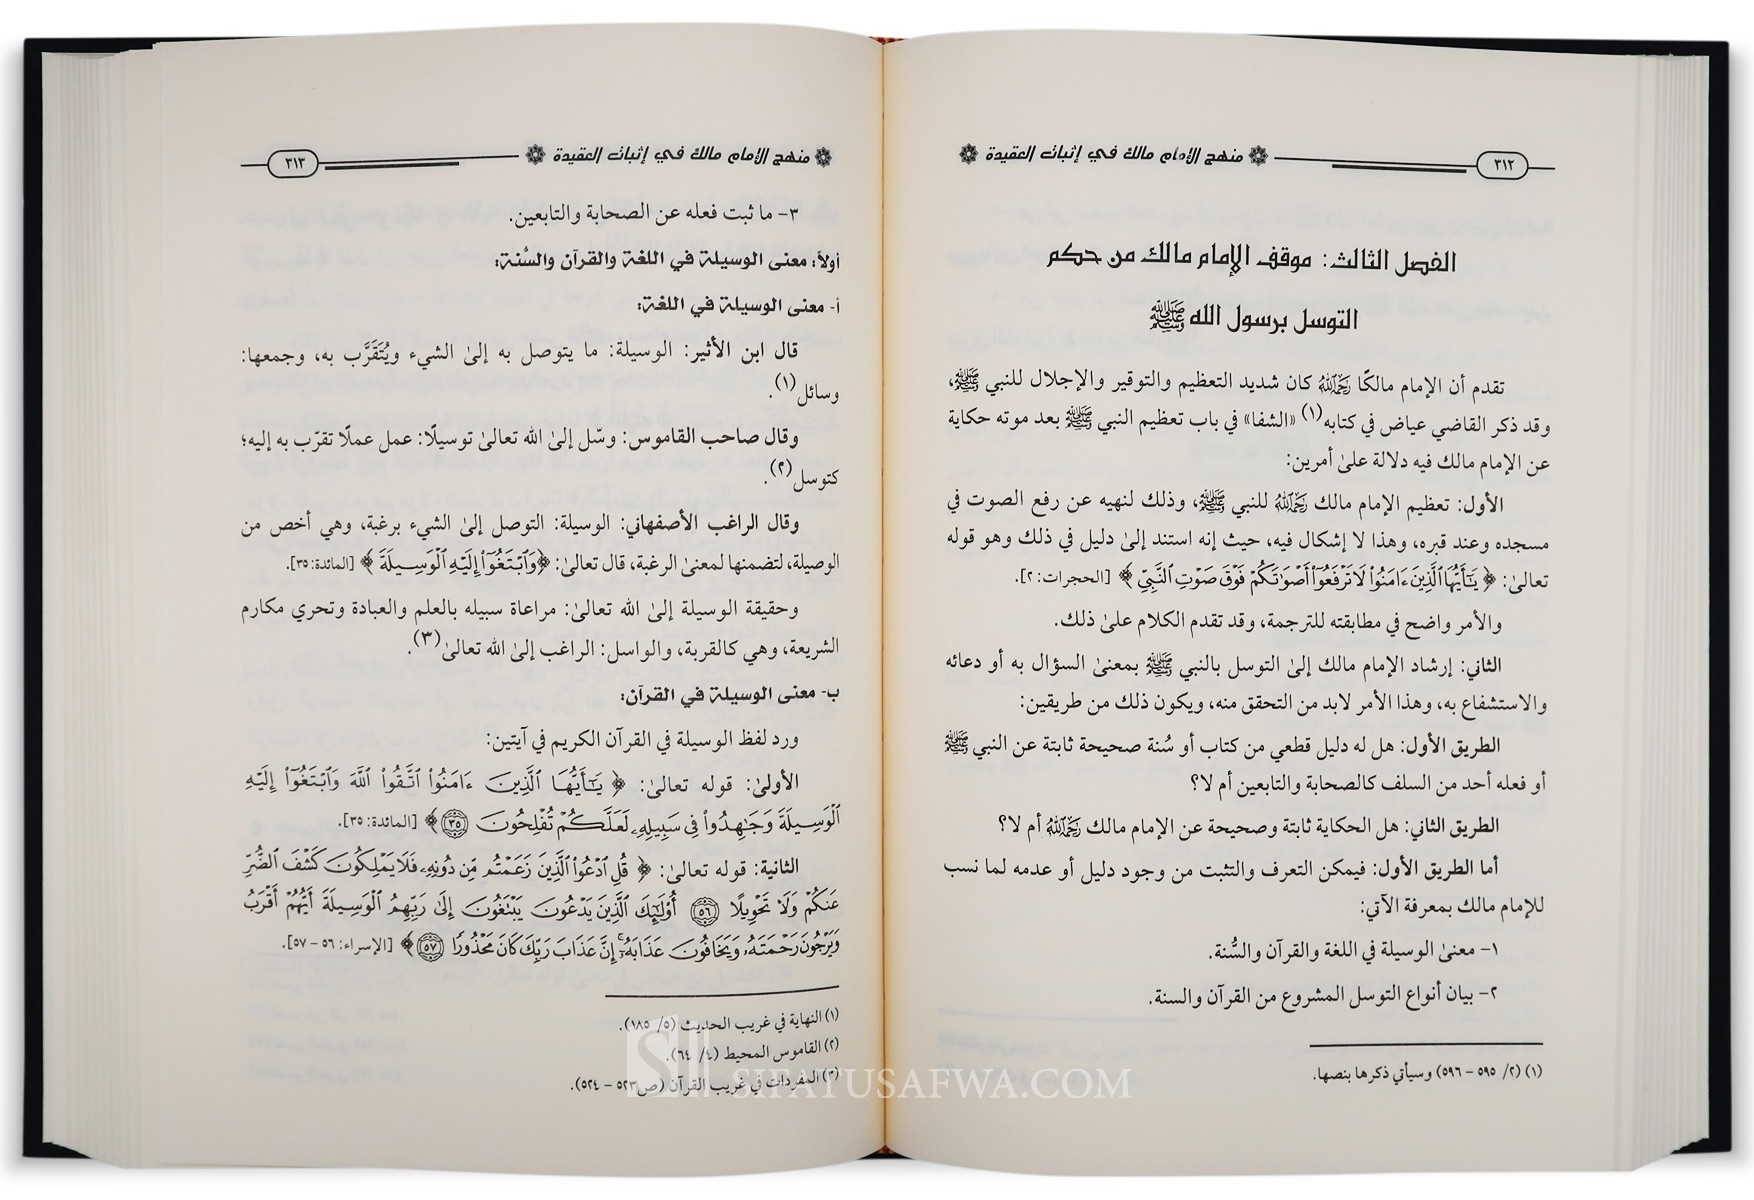 ٣١٢
منهج الإمام مالك في إثبات العقيدة
الفصل الثالث: موقف الإمام مالك من حكم
التوسل برسول الله ﷺ
تقدم أن الإمام مالكًا رَحِمَهُ اللَّهُ كان شديد التعظيم والتوقير والإجلال للنبي ﷺ،
وقد ذكر القاضي عياض في كتابه(١) «الشفا» في باب تعظيم النبي ﷺ بعد موته حكاية
عن الإمام مالك فيه دلالة علىٰ أمرين:
الأول: تعظيم الإمام مالك رَحِمَهُ اللَّهُ للنبي ﷺ، وذلك لنهيه عن رفع الصوت في
مسجده وعند قبره، وهذا لا إشكال فيه، حيث إنه استند إلىٰ دليل في ذلك وهو قوله
تعالىٰ: ﴿ يَٰٓأَيُّهَا ٱلَّذِينَ ءَامَنُوا۟ لَا تَرْفَعُوٓا۟ أَصْوَٰتَكُمْ فَوْقَ صَوْتِ ٱلنَّبِىِّ ﴾ [الحجرات: ٢].
والأمر واضح في مطابقته للترجمة، وقد تقدم الكلام علىٰ ذلك.
الثاني: إرشاد الإمام مالك إلىٰ التوسل بالنبي ﷺ بمعنىٰ السؤال به أو دعائه
والاستشفاع به، وهذا الأمر لابد من التحقق منه، ويكون ذلك من طريقين:
الطريق الأول: هل له دليل قطعي من كتاب أو سُنة صحيحة ثابتة عن النبي ﷺ
أو فعله أحد من السلف كالصحابة والتابعين أم لا؟
الطريق الثاني: هل الحكاية ثابتة وصحيحة عن الإمام مالك رَحِمَهُ اللَّهُ أم لا؟
أما الطريق الأول: فيمكن التعرف والتثبت من وجود دليل أو عدمه لما نسب
للإمام مالك بمعرفة الآتي:
١- معنىٰ الوسيلة في اللغة والقرآن والسُّنة.
٢- بيان أنواع التوسل المشروع من القرآن والسنة.
(١) (٢/ ٥٩٥ - ٥٩٦) وسيأتي ذكرها بنصها.
منهج الإمام مالك في إثبات العقيدة
٣١٣
٣- ما ثبت فعله عن الصحابة والتابعين.
أولاً: معنى الوسيلة في اللغة والقرآن والسُّنة:
أ- معنى الوسيلة في اللغة:
قال ابن الأثير: الوسيلة: ما يتوصل به إلىٰ الشيء ويُتَقَرَّب به، وجمعها:
وسائل(١).
وقال صاحب القاموس: وسّل إلىٰ الله تعالىٰ توسيلًا: عمل عملًا تقرّب به إليه؛
كتوسل(٢).
وقال الراغب الأصفهاني: الوسيلة: التوصل إلىٰ الشيء برغبة، وهي أخص من
الوصيلة، لتضمنها لمعنىٰ الرغبة، قال تعالىٰ: ﴿وَٱبْتَغُوٓا۟ إِلَيْهِ ٱلْوَسِيلَةَ ﴾ [المائدة: ٣٥].
وحقيقة الوسيلة إلىٰ الله تعالىٰ: مراعاة سبيله بالعلم والعبادة وتحري مكارم
الشريعة، وهي كالقربة، والواسل: الراغب إلىٰ الله تعالىٰ(٣).
ب- معنى الوسيلة في القرآن:
ورد لفظ الوسيلة في القرآن الكريم في آيتين:
الأولىٰ: قوله تعالىٰ: ﴿ يَٰٓأَيُّهَا ٱلَّذِينَ ءَامَنُوا۟ ٱتَّقُوا۟ ٱللَّهَ وَٱبْتَغُوٓا۟ إِلَيْهِ
ٱلْوَسِيلَةَ وَجَٰهِدُوا۟ فِى سَبِيلِهِۦ لَعَلَّكُمْ تُفْلِحُونَ ٣٥ ﴾ [المائدة: ٣٥].
الثانية: قوله تعالىٰ: ﴿ قُلِ ٱدْعُوا۟ ٱلَّذِينَ زَعَمْتُم مِّن دُونِهِۦ فَلَا يَمْلِكُونَ كَشْفَ ٱلضُّرِّ
عَنكُمْ وَلَا تَحْوِيلًا ٥٦ أُو۟لَٰٓئِكَ ٱلَّذِينَ يَدْعُونَ يَبْتَغُونَ إِلَىٰ رَبِّهِمُ ٱلْوَسِيلَةَ أَيُّهُمْ أَقْرَبُ
وَيَرْجُونَ رَحْمَتَهُۥ وَيَخَافُونَ عَذَابَهُۥٓ ۚ إِنَّ عَذَابَ رَبِّكَ كَانَ مَحْذُورًا ٥٧ ﴾ [الإسراء: ٥٦ - ٥٧].
(١) النهاية في غريب الحديث (٥/ ١٨٥).
(٢) القاموس المحيط (٤/ ٦٤).
(٣) المفردات في غريب القرآن (ص٥٢٣ - ٥٢٤).
SIFATUSAFWA.COM